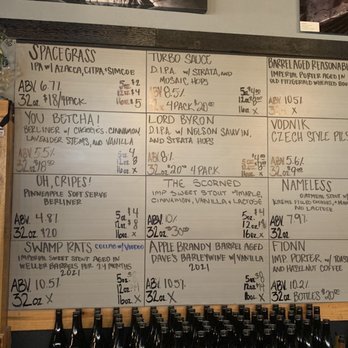 SPACEGRASS
IPA W/ AZACCA, CITRA, SIMCOE
ABV 6.7%
32oz $18/4PACK
5oz $2
12oz $4
16oz $5
TURBO SAUCE
D.I.P.A. W/ STRATA, AND
MOSAIC HOPS
ABV 8.5%
32oz 4PACK $20
16oz X
BARREL AGED REASONAB
IMPERIAL PORTER AGED IN
OLD FITZGERALD WHEATED BO
ABV 10.5%
32oz X
YOU BETCHA!
BERLINER W/ CHERRIES, CINNAMON,
LAVENDER STEMS, AND VANILLA
ABV 5.5%
32oz
16oz X
LORD BYRON
D.I.P.A. W/ NELSON SAUVIN,
AND STRATA HOPS
ABV 8%
32oz $20 4PACK
16oz X
VODNIK
CZECH STYLE PILS
ABV 5.6%
32oz
OH, CRIPES!
PINEAPPLE SOFT SERVE
BERLINER
ABV 4.8%
32oz $20
16oz X
THE SCORNED
IMP SWEET STOUT W/ MAPLE,
CINNAMON, VANILLA & LACTOSE
ABV 10%
32oz $30
16oz X
NAMELESS
OATMEAL STOUT W/
AND LACTOSE
ABV 7.9%
32oz X
SWAMP RATS COLLAB W/ VOODOO
IMPERIAL SWEET STOUT AGED IN
WELLER BARRELS FOR 24 MONTHS
2021
ABV 10.5%
32oz X
16oz X
APPLE BRANDY BARREL AGED
DAVE'S BARLEYWINE W/ VANILLA
2021
ABV 10.5%
32oz X
16oz X
FIONN
IMP. PORTER W/ TOAST
AND HAZELNUT COFFEE
ABV 10.2%
32oz BOTTLES $20